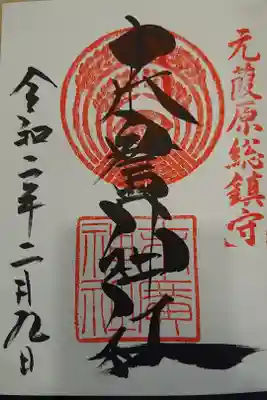 元葭原総鎮守
末廣神社
令和二年二月九日